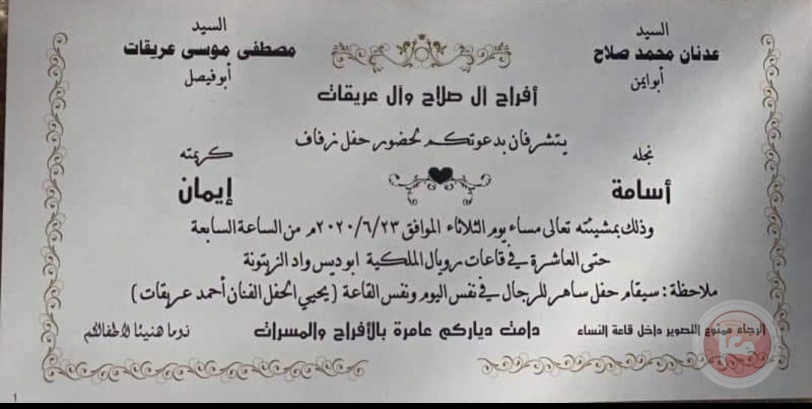 السيد
عدنان محمد صلاح
أبو ايمن
السيد
مصطفى موسى عريقات
أبو فيصل
أفراح آل صلاح وآل عريقات
يتشرفان بدعوتكم لحضور حفل زفاف
نجله
أسامة
كريمته
إيمان
وذلك بمشيئته تعالى مساء يوم الثلاثاء الموافق ٢٠٢٠/٦/٢٣م من الساعة السابعة
حتى العاشرة في قاعات رويال الملكية ابوديس واد الزيتونة
ملاحظة : سيقام حفل ساهر للرجال في نفس اليوم ونفس القاعة ( يحيي الحفل الفنان أحمد عريقات )
الرجاء ممنوع التصوير داخل قاعة النساء
دامت دياركم عامرة بالأفراح والمسرات
نوما هنيئا لأطفالكم
معا
1